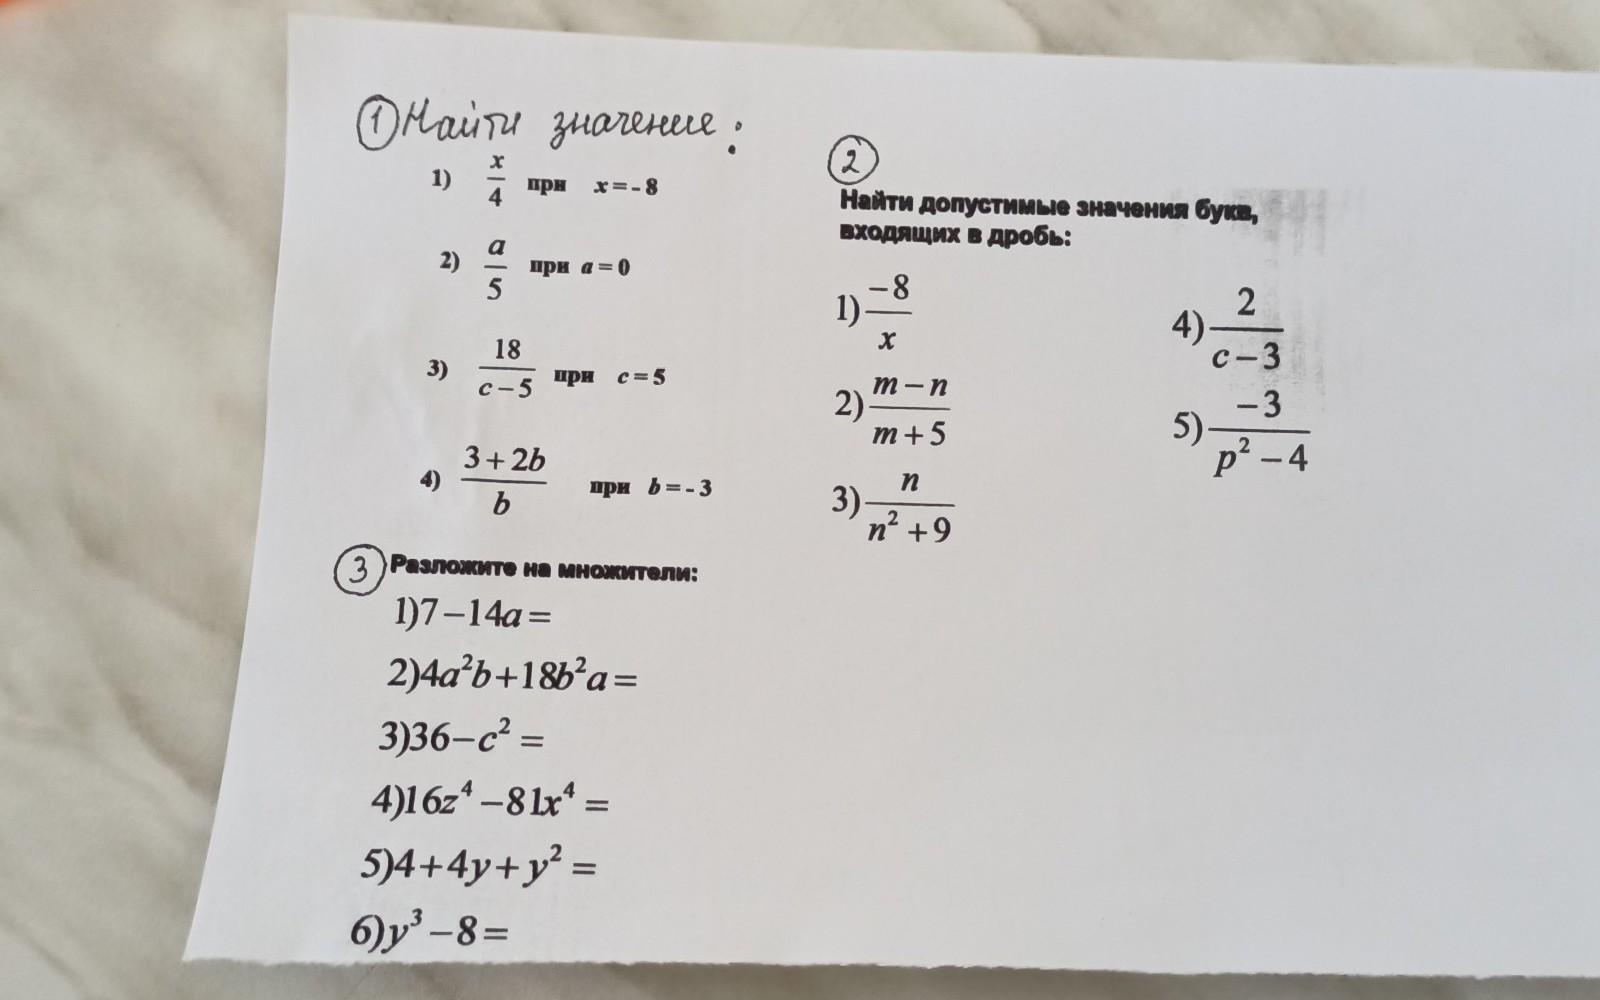 ① Найти значение:
1) x/4 при x = - 8
2) a/5 при a = 0
3) 18/(c – 5) при c = 5
4) (3 + 2b)/b при b = - 3
②
Найти допустимые значения букв,
входящих в дробь:
1) –8/x
2) (m – n)/(m + 5)
3) n/(n² + 9)
4) 2/(c – 3)
5) –3/(p² – 4)
③ Разложите на множители:
1)7 – 14a =
2)4a²b + 18b²a =
3)36 – c² =
4)16z⁴ – 81x⁴ =
5)4 + 4y + y² =
6)y³ – 8 =